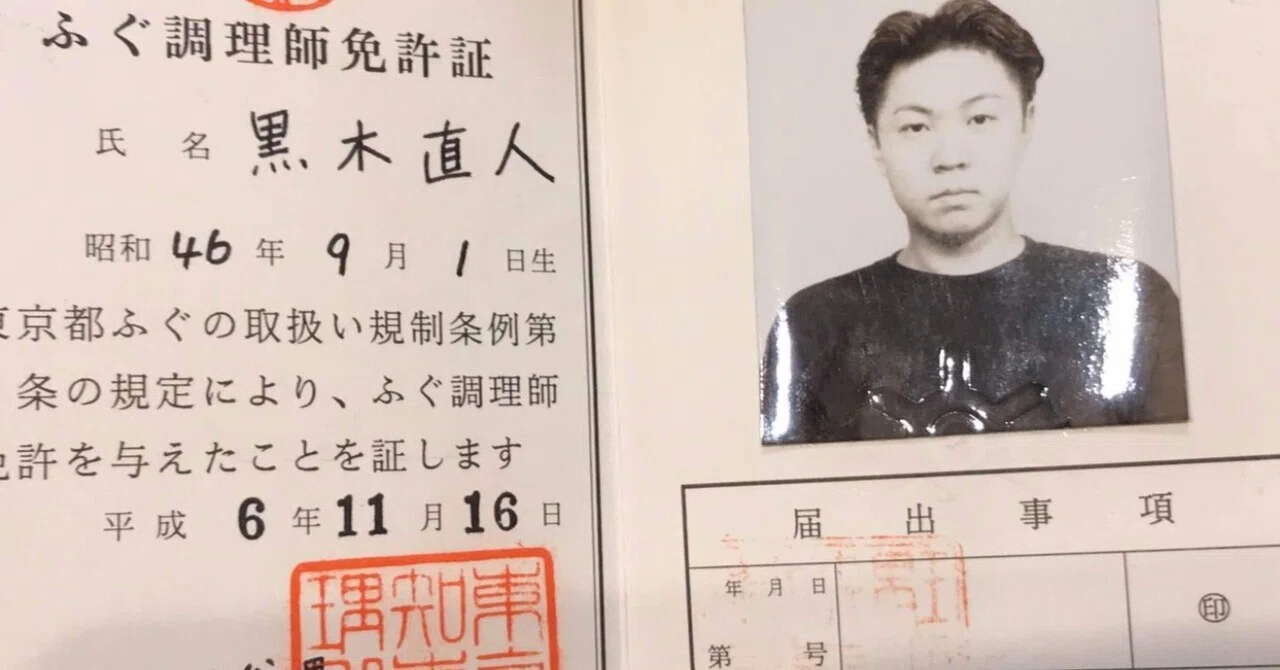 ふぐ調理師免許証
氏名 黒木直人
昭和46年9月1日生
東京都ふぐの取扱い規制条例第
条の規定により、ふぐ調理師
免許を与えたことを証します
平成6年11月16日
東京
知事
届出事項
年月日
第号
㊞